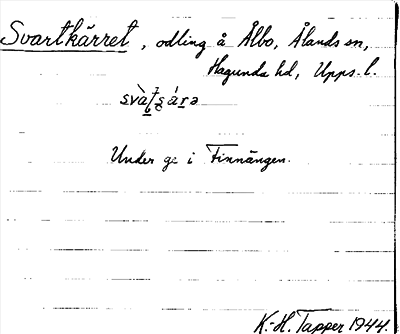 Svartkärret, odling å Ålbo, Ålands sn,
Hagunda hd, Upps. l.
Under gc i Finnängen.
K.-H. Tapper 1944.